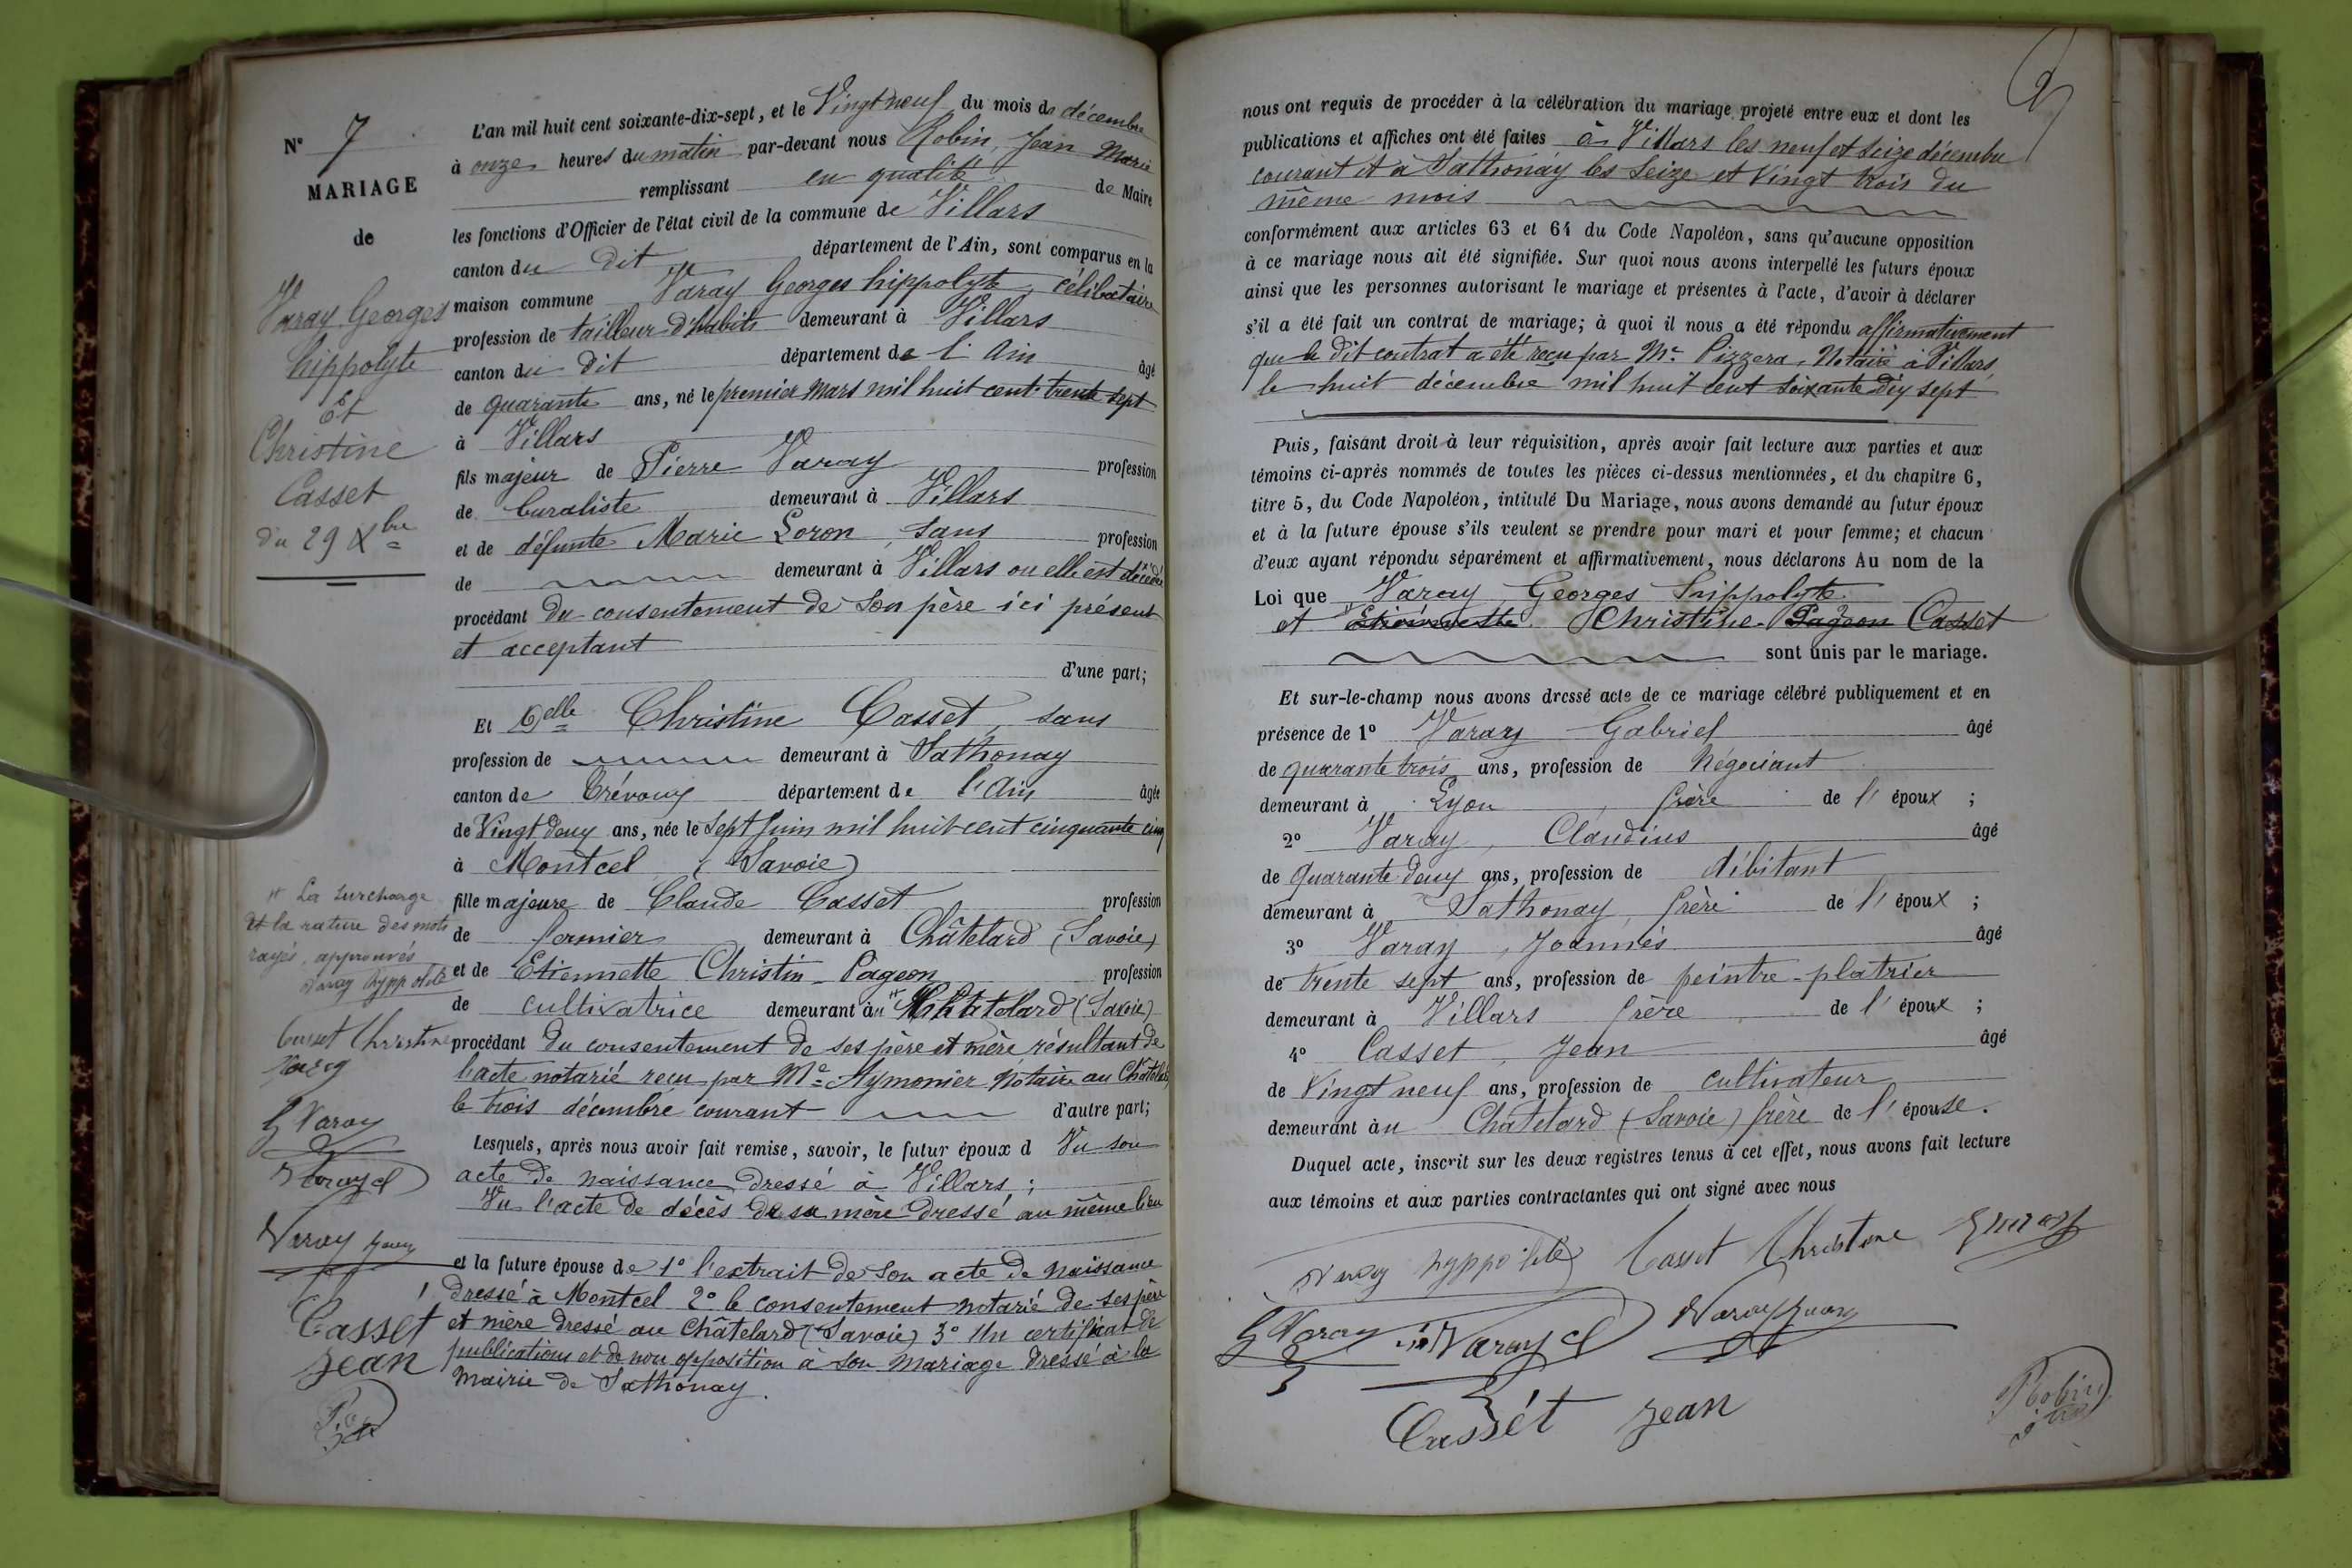 N° 7
MARIAGE
de
Varay Georges
hippolyte
Et
Christine
Casset
du 29 Xbre
L'an mil huit cent soixante-dix-sept, et le Vingt neuf du mois de décembre
à onze heures du matin par-devant nous Robin, Jean Marie
remplissant en qualité de Maire
les fonctions d'Officier de l'état civil de la commune de Villars
canton du dit département de l'Ain, sont comparus en la
maison commune Varay Georges hippolyte, célibataire
profession de tailleur d'habits demeurant à Villars
canton du dit département de l'Ain âgé
de quarante ans, né le premier mars mil huit cent trente sept
à Villars
fils majeur de Pierre Varay profession
de buraliste demeurant à Villars
et de défunte Marie Loron, sans profession
de demeurant à Villars ou elle est décédée
procédant du consentement de son père ici présent
et acceptant
d'une part;
Et Delle Christine Casset, sans
profession de demeurant à Sathonay
canton de Trévoux département de l'Ain âgée
de Vingt deux ans, née le sept juin mil huit cent cinquante cinq
à Montcel (Savoie)
fille majeure de Claude Casset profession
de fermier demeurant à Châtelard (Savoie)
et de Etiennette Christin-Pageon profession
de cultivatrice demeurant au Châtelard (Savoie)
procédant du consentement de ses père et mère résultant de
l'acte notarié reçu par Me Aymonier Notaire au Châtelard
le trois décembre courant d'autre part;
Lesquels, après nous avoir fait remise, savoir, le futur époux d Vu son
acte de naissance dressé à Villars;
Vu l'acte de décès de sa mère dressé au même lieu
et la future épouse de 1° l'extrait de son acte de naissance
dressé à Montcel 2° le consentement notarié de ses père
et mère dressé au Châtelard (Savoie) 3° Un certificat de
publications et de non opposition à son mariage dressé à la
mairie de Sathonay.
La surcharge
et la rature des mots
rayés, approuvés
Varay hyppolite
Casset Christine
Varay
G Varay
Varay cl
Varay
Cassét
jean
nous ont requis de procéder à la célébration du mariage projeté entre eux et dont les
publications et affiches ont été faites à Villars les neuf et seize décembre
courant et à Sathonay les seize et vingt trois du
même mois
conformément aux articles 63 et 64 du Code Napoléon, sans qu'aucune opposition
à ce mariage nous ait été signifiée. Sur quoi nous avons interpellé les futurs époux
ainsi que les personnes autorisant le mariage et présentes à l'acte, d'avoir à déclarer
s'il a été fait un contrat de mariage; à quoi il nous a été répondu affirmativement
que le dit contrat a été reçu par Me Pizzera, Notaire à Villars,
le huit décembre mil huit cent soixante dix sept
Puis, faisant droit à leur réquisition, après avoir fait lecture aux parties et aux
témoins ci-après nommés de toutes les pièces ci-dessus mentionnées, et du chapitre 6,
titre 5, du Code Napoléon, intitulé Du Mariage, nous avons demandé au futur époux
et à la future épouse s'ils veulent se prendre pour mari et pour femme; et chacun
d'eux ayant répondu séparément et affirmativement, nous déclarons Au nom de la
Loi que Varay Georges hippolyte
et Etiennette Christine-Pageon Casset
sont unis par le mariage.
Et sur-le-champ nous avons dressé acte de ce mariage célébré publiquement et en
présence de 1° Varay Gabriel âgé
de quarante trois ans, profession de Négociant
demeurant à Lyon, frère de l'époux;
2° Varay, Claudius âgé
de quarante deux ans, profession de débitant
demeurant à Sathonay, frère de l'époux;
3° Varay, Joannès âgé
de trente sept ans, profession de peintre-platrier
demeurant à Villars frère de l'époux;
4° Casset, Jean âgé
de Vingt neuf ans, profession de cultivateur
demeurant au Châtelard (Savoie) frère de l'épouse.
Duquel acte, inscrit sur les deux registres tenus à cet effet, nous avons fait lecture
aux témoins et aux parties contractantes qui ont signé avec nous
Varay hyppolite Casset Christine Varay
G Varay Varay cl Varay
Cassét jean
Robin